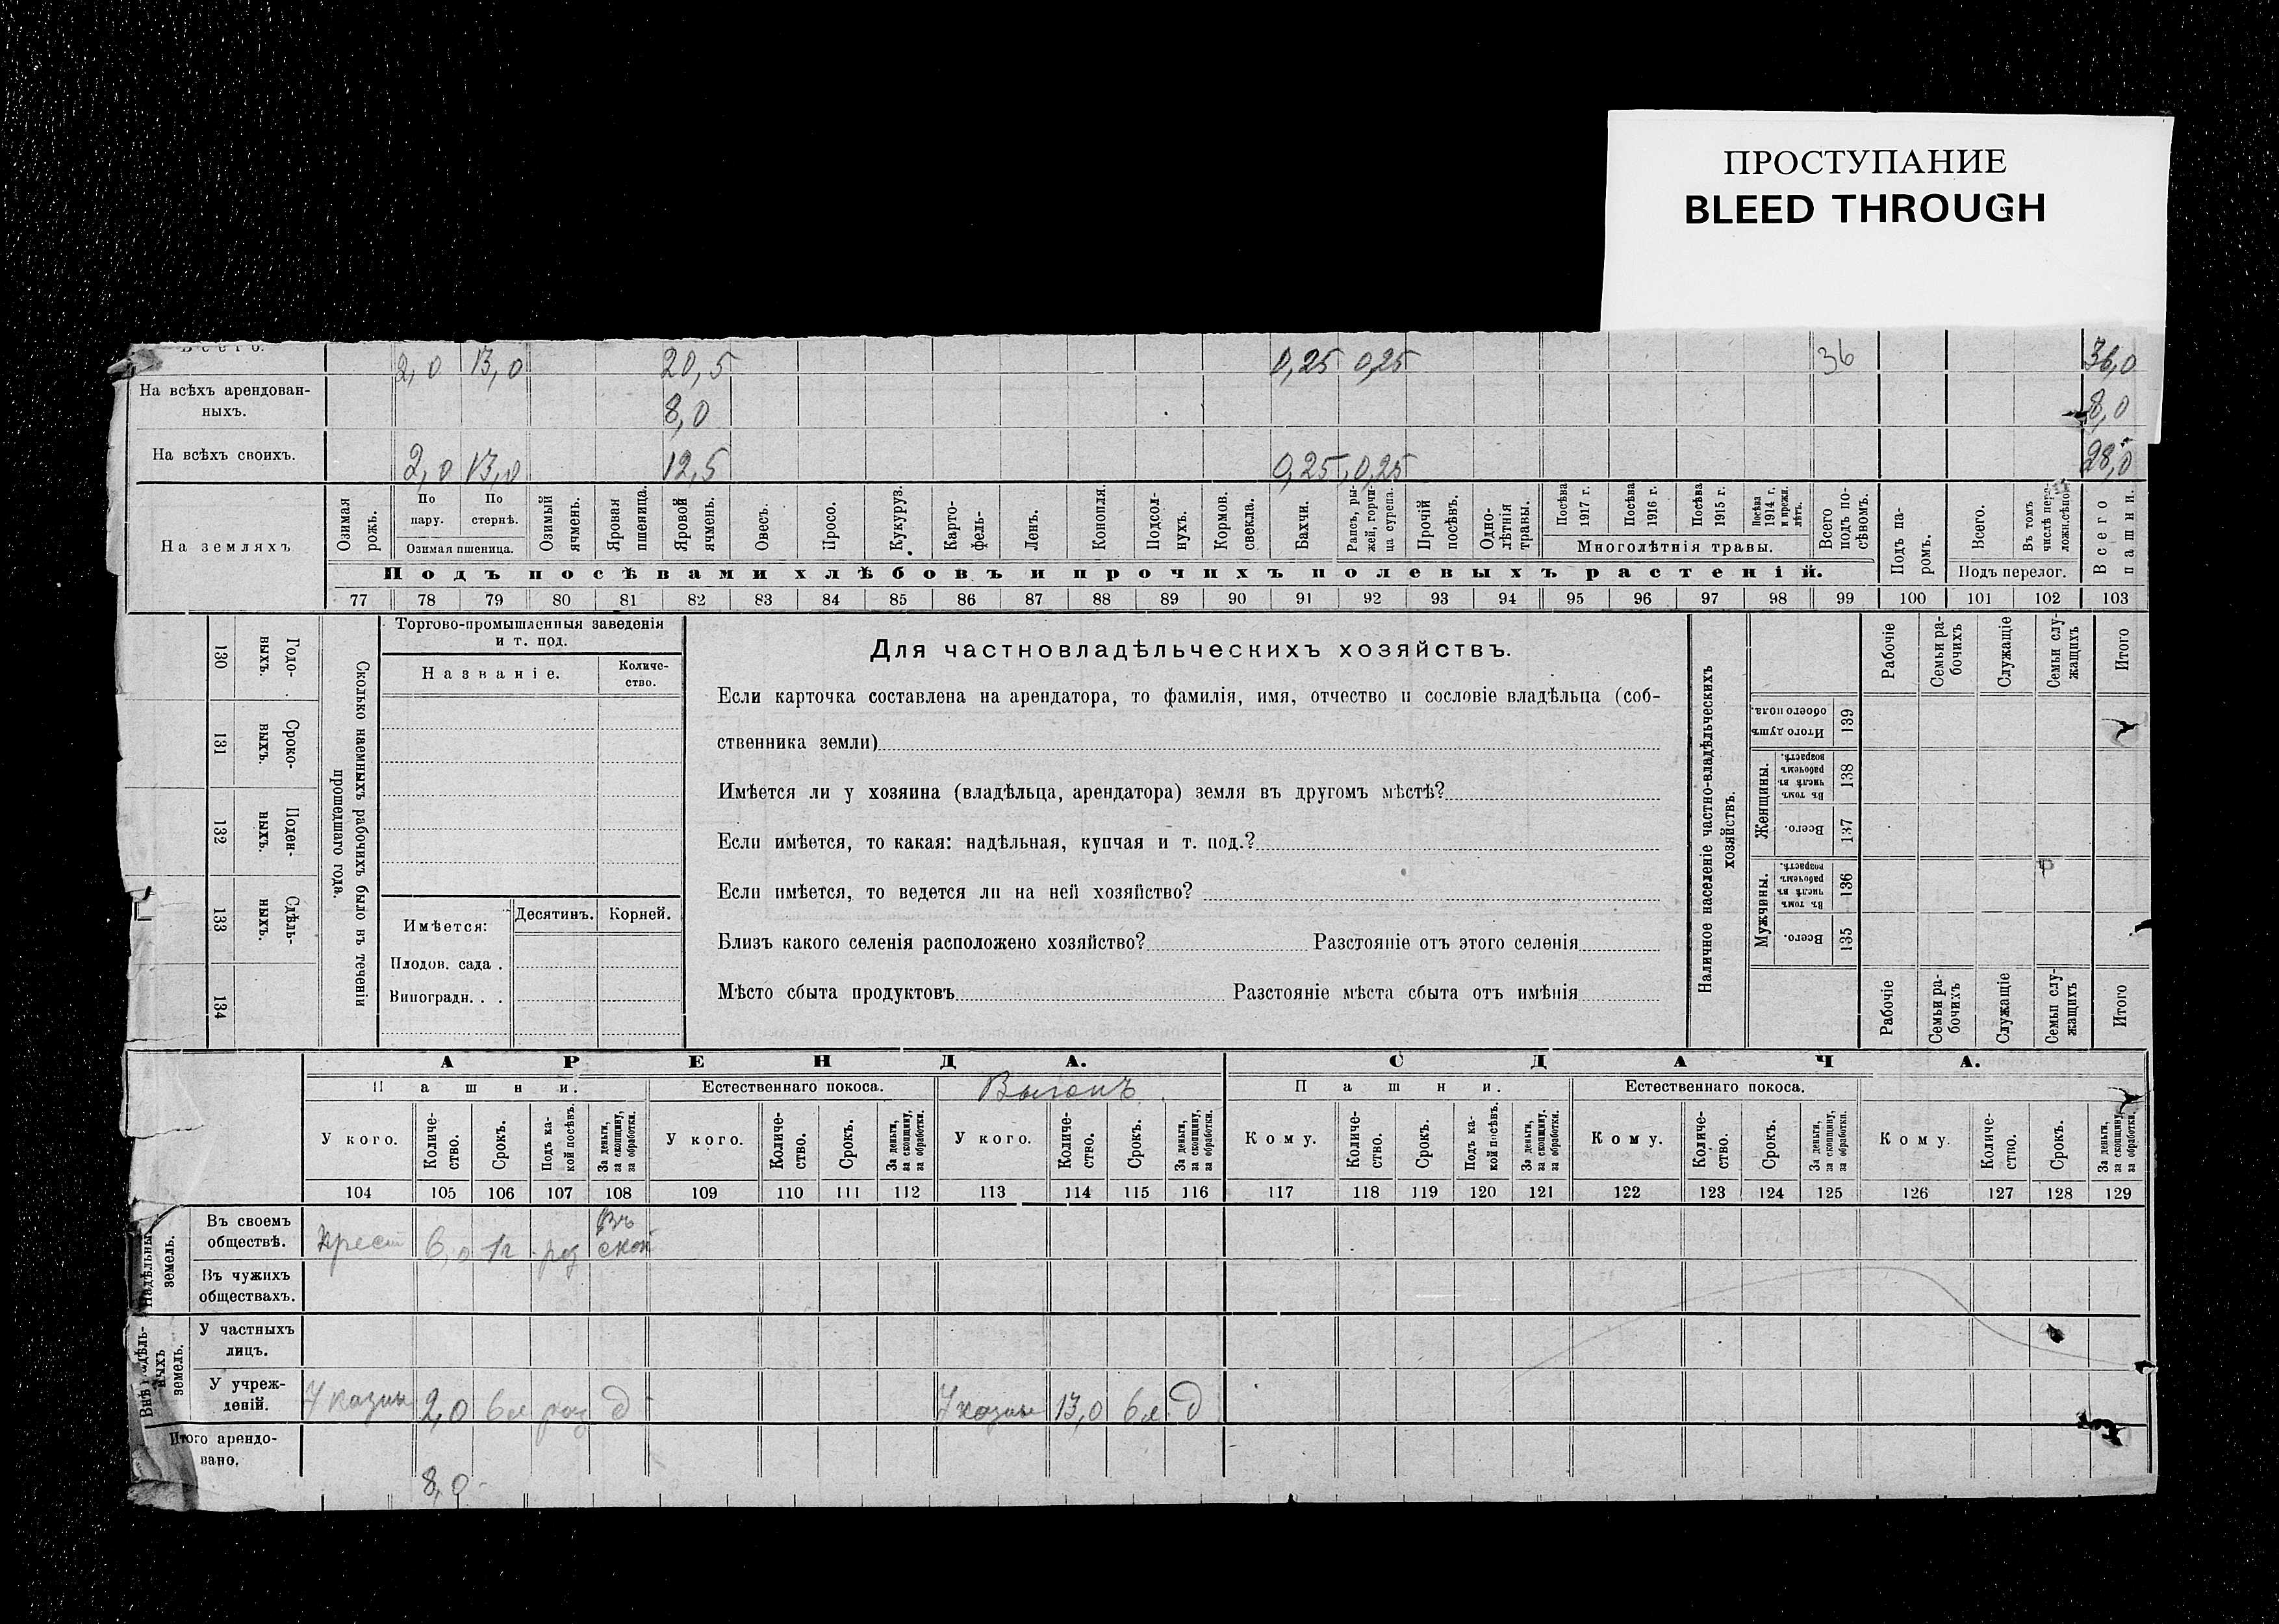 ПРОСТУПАНИЕ
BLEED THROUGH
Всего. 2,0 13,0 20,5 0,25 0,25 36 36,0
На всѣхъ арендован-
ныхъ. 8,0 8,0
На всѣхъ своихъ. 2,0 13,0 12,5 0,25 0,25 28,0
На земляхъ
Озимая рожь.
По пару.
По стернѣ.
Озимая пшеница.
Озимый ячмень.
Яровая пшеница.
Яровой ячмень.
Овесъ.
Просо.
Кукуруз.
Карто-
фель-
Ленъ.
Конопля.
Подсол-
нухъ.
Кормов.
свекла.
Бахчи.
Рапсъ, ры-
жей, горчи-
ца сурепа.
Прочій
посѣвъ.
Одно-
лѣтнія
травы.
Посѣва
1917 г.
Посѣва
1916 г.
Посѣва
1915 г.
Посѣва
1914 г.
и прежн.
лѣтъ.
Многолѣтнія травы.
Всего
подъ по-
сѣвомъ.
Подъ па-
ромъ.
Всего.
Въ томъ
числѣ пере-
лож.сѣнок.
Подъ перелог.
Всего
пашни.
Подъ посѣвами хлѣбовъ и прочихъ полевыхъ растеній.
77 78 79 80 81 82 83 84 85 86 87 88 89 90 91 92 93 94 95 96 97 98 99 100 101 102 103
130 Годо-
ныхъ.
131 Сроко-
ныхъ.
132 Поден-
ныхъ.
133 Сдѣль-
ныхъ.
134
Сколько наемныхъ рабочихъ было въ теченіи
прошедшаго года.
Торгово-промышленныя заведенія
и т. под.
Названіе.
Количе-
ство.
Имѣется: Десятинъ. Корней.
Плодов. сада .
Виноградн. . .
Для частновладѣльческихъ хозяйствъ.
Если карточка составлена на арендатора, то фамилія, имя, отчество и сословіе владѣльца (соб-
ственника земли)
Имѣется ли у хозяина (владѣльца, арендатора) земля въ другомъ мѣстѣ?
Если имѣется, то какая: надѣльная, купчая и т. под.?
Если имѣется, то ведется ли на ней хозяйство?
Близъ какого селенія расположено хозяйство? Разстояніе отъ этого селенія
Мѣсто сбыта продуктовъ Разстояніе мѣста сбыта отъ имѣнія
Наличное населеніе частно-владѣльческихъ
хозяйствъ.
Рабочіе
Семьи ра-
бочихъ
Служащіе
Семьи слу-
жащихъ
Итого
Итого душъ
обоего пола.
139
Женщины.
Въ томъ
числѣ въ
рабочемъ
возрастѣ.
138
Всего.
137
Мужчины.
Въ томъ
числѣ въ
рабочемъ
возрастѣ.
136
Всего.
135
Рабочіе
Семьи ра-
бочихъ
Служащіе
Семьи слу-
жащихъ
Итого
АРЕНДА. СДАЧА.
Пашни. Естественнаго покоса. Выгонъ Пашни. Естественнаго покоса.
У кого.
Количе-
ство.
Срокъ.
Подъ ка-
кой посѣвъ.
За деньги,
за скопщину,
за обработки.
У кого.
Количе-
ство.
Срокъ.
За деньги,
за скопщину,
за обработки.
У кого.
Количе-
ство.
Срокъ.
За деньги,
за скопщину,
за обработки.
Кому.
Количе-
ство.
Срокъ.
Подъ ка-
кой посѣвъ.
За деньги,
за скопщину.
за обработки.
Кому.
Количе-
ство.
Срокъ.
За деньги,
за скопщину,
за обработки.
Кому.
Количе-
ство.
Срокъ.
За деньги,
за скопщину,
за обработки.
104 105 106 107 108 109 110 111 112 113 114 115 116 117 118 119 120 121 122 123 124 125 126 127 128 129
Надѣльныхъ
земель.
Въ своемъ
обществѣ. крест 6,0 1г роз Въ
скоп
Въ чужихъ
обществахъ.
Внѣнадѣль-
ныхъ
земель.
У частныхъ
лицъ.
У учреж-
деній. У казны 2,0 6л роз д У казны 13,0 6л д
Итого арендо-
вано. 8,0